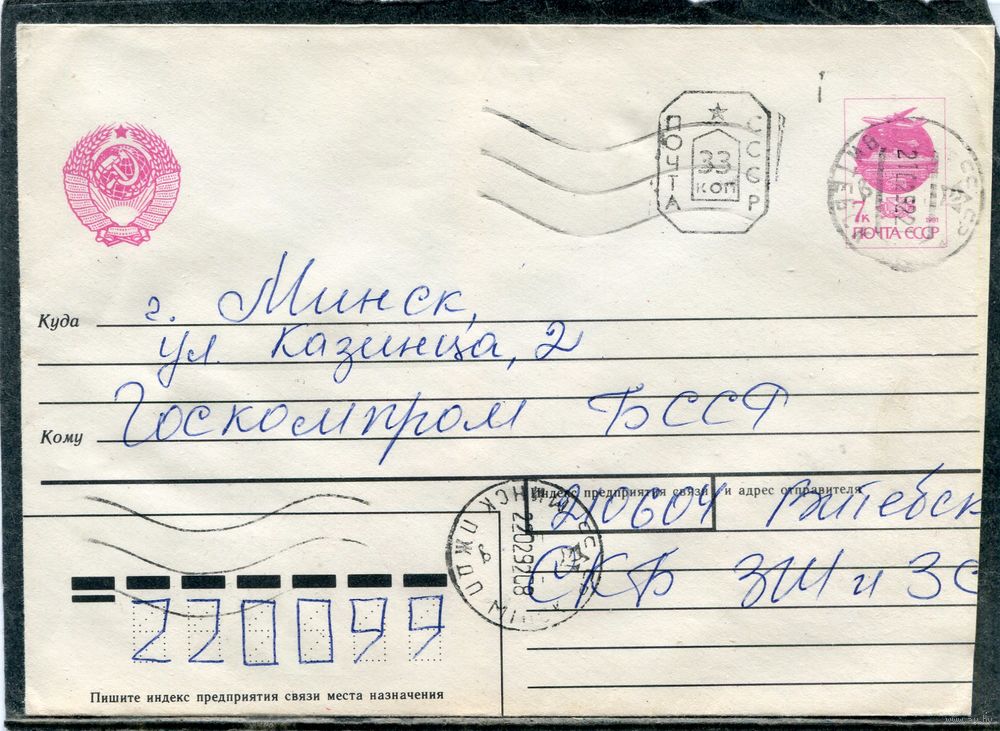 ПОЧТА
СССР
33
КОП
7
к
1991
ПОЧТА СССР
ВИТЕБСК
Куда
г. Минск,
ул. Казинца, 2
Кому
Госкомпром БССР
Индекс предприятия связи и адрес отправителя
210604 Витебск
СКБ ЗШ и ЗС
МИНСК ПЖДП
22029208
220099
Пишите индекс предприятия связи места назначения